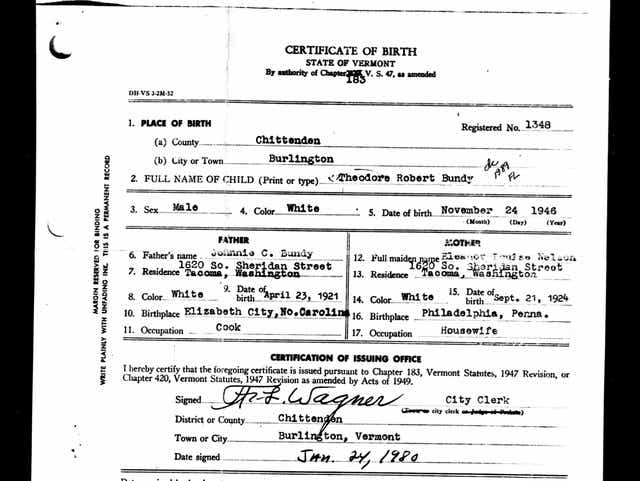 CERTIFICATE OF BIRTH
STATE OF VERMONT
By authority of Chapter V. S. 47, as amended
183
DH-VS 3-2M-52
1. PLACE OF BIRTH
Registered No. 1348
(a) County Chittenden
(b) City or Town Burlington
2. FULL NAME OF CHILD (Print or type) Theodore Robert Bundy
dc 1989 FL
3. Sex Male 4. Color White 5. Date of birth November 24 1946
(Month) (Day) (Year)
FATHER MOTHER
6. Father's name Johnnie C. Bundy 12. Full maiden name Eleanor Louise Nelson
1620 So. Sheridan Street 1620 So. Sheridan Street
7. Residence Tacoma, Washington 13. Residence Tacoma, Washington
8. Color White 9. Date of birth April 23, 1921 14. Color White 15. Date of birth Sept. 21, 1924
10. Birthplace Elizabeth City, No. Carolina 16. Birthplace Philadelphia, Penna.
11. Occupation Cook 17. Occupation Housewife
CERTIFICATION OF ISSUING OFFICE
I hereby certify that the foregoing certificate is issued pursuant to Chapter 183, Vermont Statutes, 1947 Revision, or
Chapter 420, Vermont Statutes, 1947 Revision as amended by Acts of 1949.
Signed H. L. Wagner City Clerk
(Town or city clerk or Judge of Probate)
District or County Chittenden
Town or City Burlington, Vermont
Date signed Jan. 24, 1980
MARGIN RESERVED FOR BINDING
WRITE PLAINLY WITH UNFADING INK. THIS IS A PERMANENT RECORD